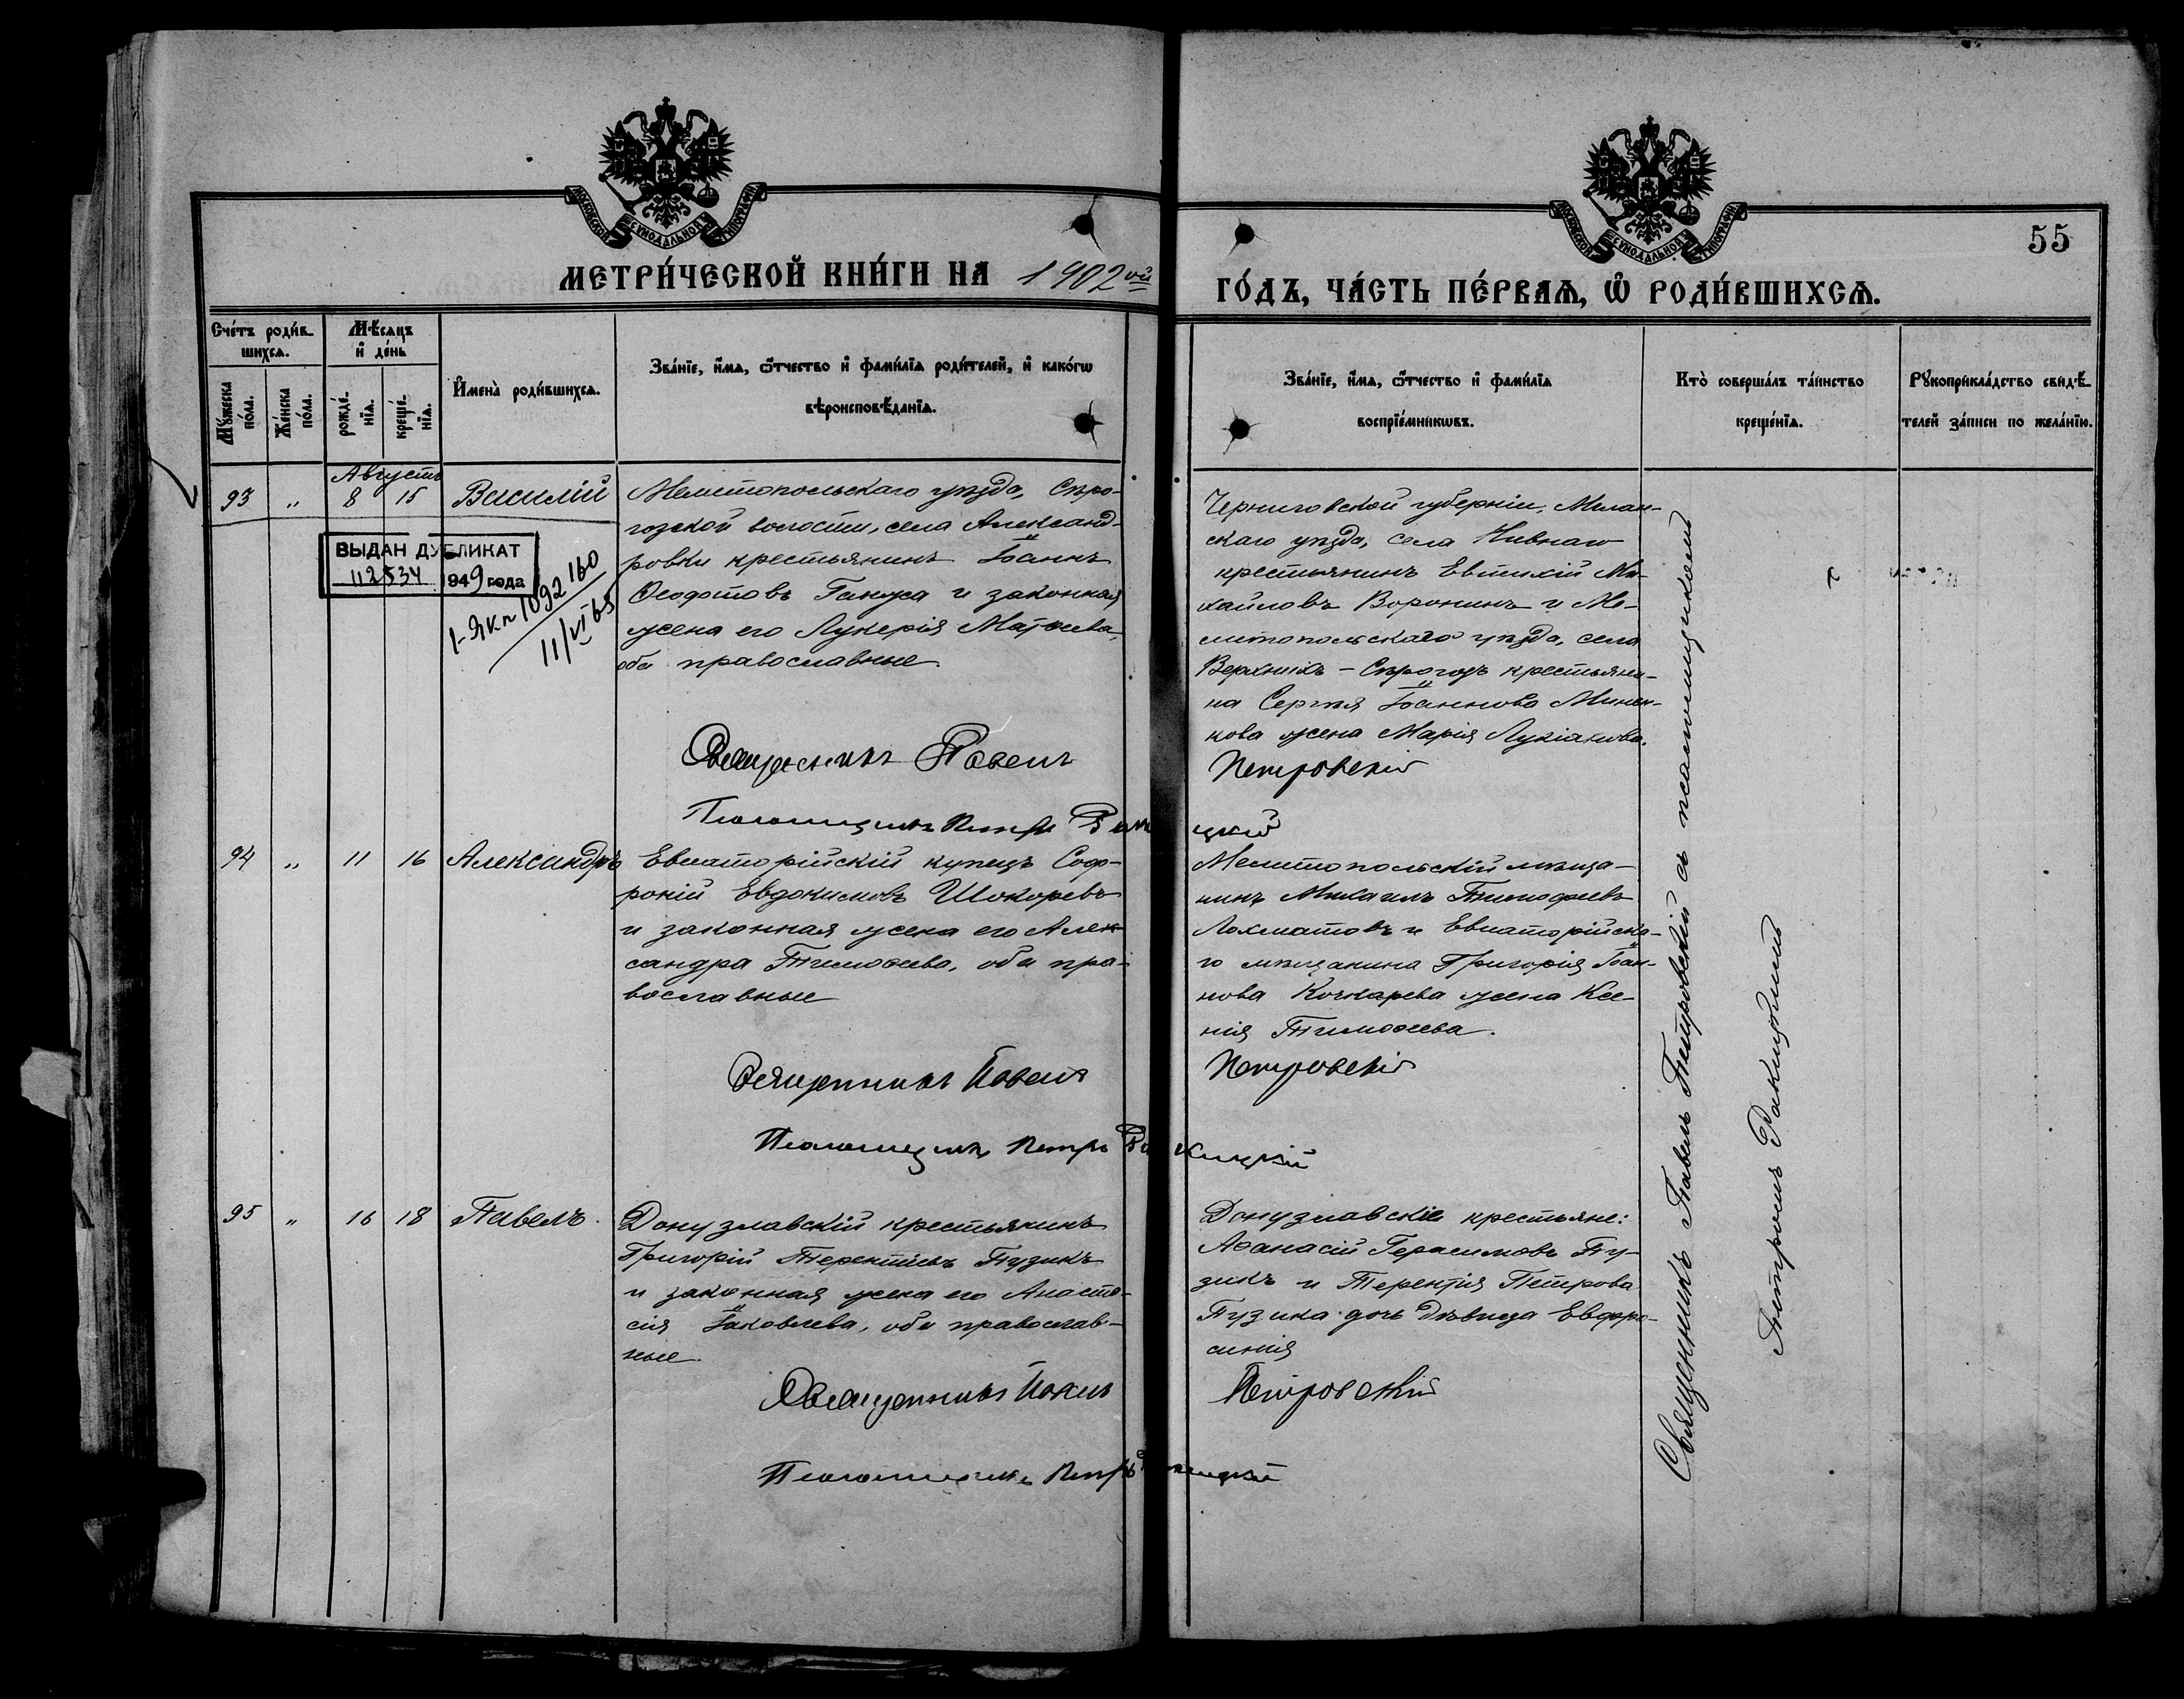 МЕТРИ́ЧЕСКОЙ КНИ́ГИ НА 1902ой
ГО́ДЪ, ЧА́СТЬ ПЕ́РВАѦ, Ѡ҆ РОДИ́ВШИХСѦ.
55
Сче́тъ роди́в
шихсѧ.
Мꙋжеска по́ла.
Же́нска по́ла.
Мѣсѧцъ
и҆ де́нь
рожде́нїѧ.
креще́нїѧ.
И҆мена̀ роди́вшихсѧ.
Зва́нїе, и҆́мѧ, ѻ҆́тчество и҆ фами́лїѧ роди́телей, и҆ како́гѡ
вѣроисповѣ́данїѧ.
Зва́нїе, и҆́мѧ, ѻ҆́тчество и҆ фами́лїѧ
воспрїе́мникѡвъ.
Кто̀ соверша́лъ та́инство
креще́нїѧ.
Рꙋкоприкла́дство свидѣ́
телей за́писи по жела́нїю.
Августъ
93 " 8 15 Василій
Мелитопольскаго уѣзда, Сѣро-
гозской волости, села Александ-
ровки крестьянинъ Іоаннъ
Ѳеодотовъ Ганжа и законная
жена его Лукерія Матѳеева,
оба православные
Священникъ Павелъ Петровскій
Псаломщикъ Петръ Ракицкій
Черниговской губерніи, Мглин-
скаго уѣзда, села Нивнаго
крестьянинъ Евтихій Ми-
хайловъ Воронинъ и Ме-
литопольскаго уѣзда, села
Верхнихъ-Сѣрогозъ крестьяни-
на Сергія Іоаннова Минен-
кова жена Марія Лукіанова.
ВЫДАН ДУБЛИКАТ
112534 1949 года
1-Як № 1092 160
11/VI 65
94 " 11 16 Александръ
Евпаторійскій купецъ Соф-
роній Евдокимовъ Шокоревъ
и законная жена его Алек-
сандра Тимоѳеева, оба пра-
вославные
Священникъ Павелъ Петровскій
Псаломщикъ Петръ Ракицкій
Мелитопольскій мѣща-
нинъ Михаилъ Тимофеевъ
Лохматовъ и Евпаторійска-
го мѣщанина Григорія Іоан-
нова Кочкарева жена Ксе-
нія Тимоѳеева.
95 " 16 18 Павелъ.
Донузлавскій крестьянинъ
Григорій Терентіевъ Пузикъ
и законная жена его Анаста-
сія Іаковлева, оба православ-
ные.
Священникъ Павелъ Петровскій
Псаломщикъ Петръ Ракицкій
Донузлавскіе крестьяне:
Аѳанасій Герасимовъ Пу-
зикъ и Терентія Петрова
Пузика дочь дѣвица Евфро-
синія
Священникъ Павелъ Петровскій съ псаломщикомъ
Петромъ Ракицкимъ